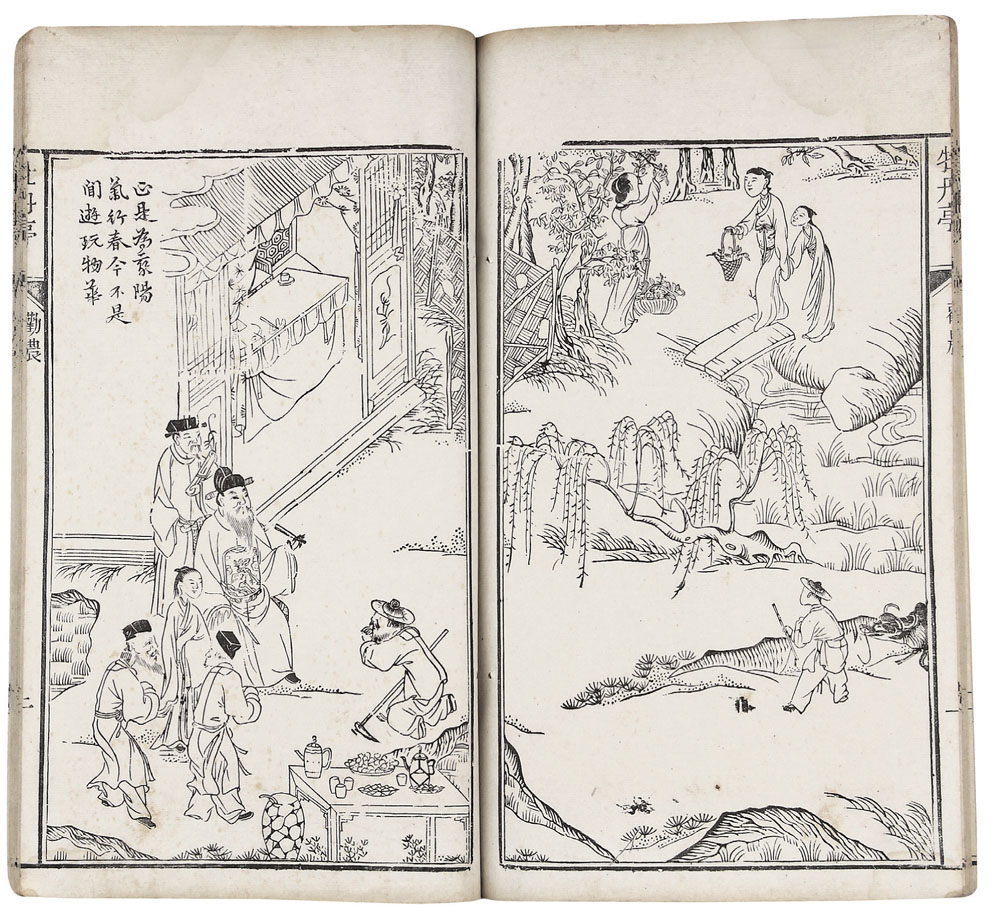 牡丹亭
勸農
正是為乘陽
氣行春令不是
閒遊玩物華
牡丹亭
勸農
二